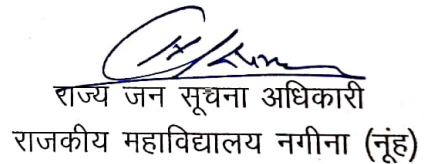 राज्य जन सूचना अधिकारी
राजकीय महाविद्यालय नगीना (नूंह)